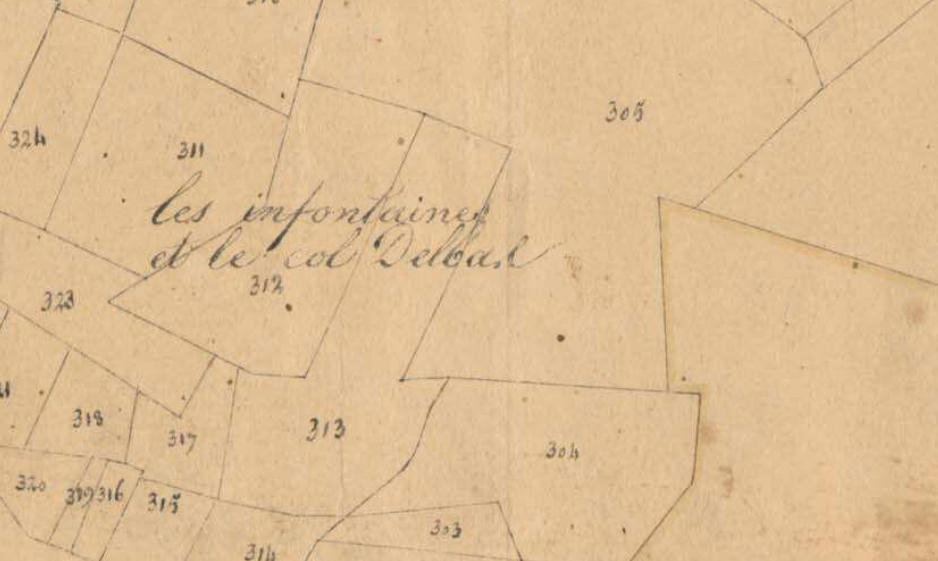 305
324
311
les infontaines
et le col Delbas
312
323
318
317
313
304
320
319
316
315
303
314